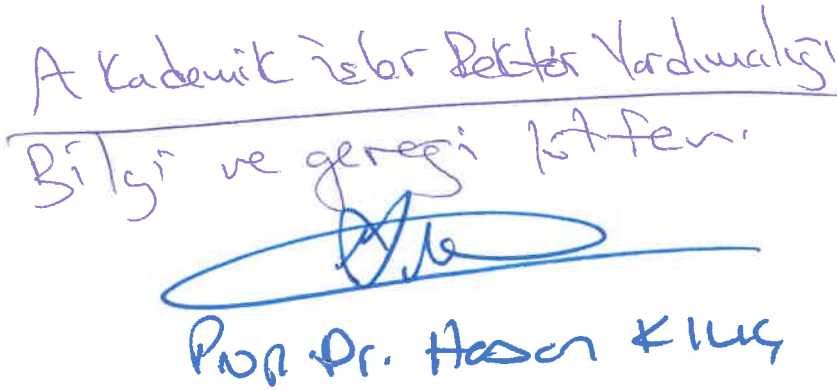 Akademik işler Rektör Yardımcılığı
Bilgi ve gereği lütfen.
Prof. Dr. Hasan KILIÇ